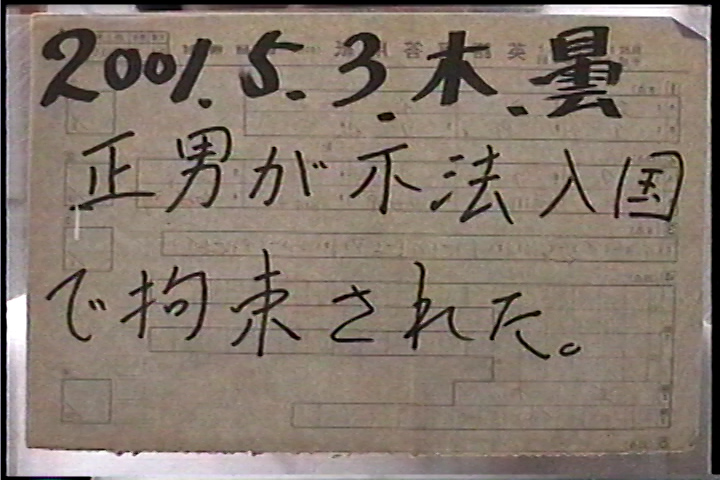 2001.5.3.木.曇
正男が不法入国
で拘束された。
英語
答
用紙